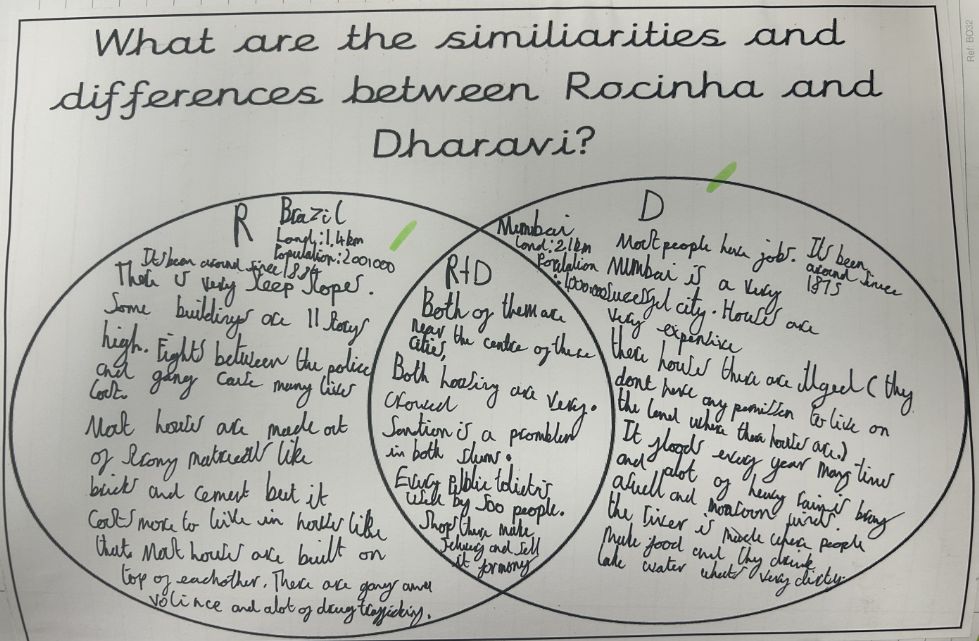 Ref: BO32
What are the similiarities and
differences between Rocinha and
Dharavi?
R Brazil
Land: 1.4km
Population: 200,000
It's been around since 1884
There is very steep slopes.
Some buildings are 11 storys
high. Fights between the police
and gang cause many lives
lost.
Most houses are made out
of strong matreals like
brick and cement but it
costs more to live in houses like
that. Most houses are built on
top of eachother. There are gangs and
volince and alot of drug trafficking.
Mumbai
Land: 2.1km
R+D
Both of them are
near the centre of there
cities,
Both housing are very
crowed
is a promblem
in both slums.
Every public
by 500 people.
Shops there make
and sell
it for mony
D
Most people have jobs. It's been
around since
1875
Mumbai is a very
city. Houses are
very expensive
there houses there are illgeal (they
dont have any permitten to live on
the land where there houses are.)
It floods every year many times
and alot of heavy rain is bring
and monsoon
the river is where people
make food and they drink
water very dirty